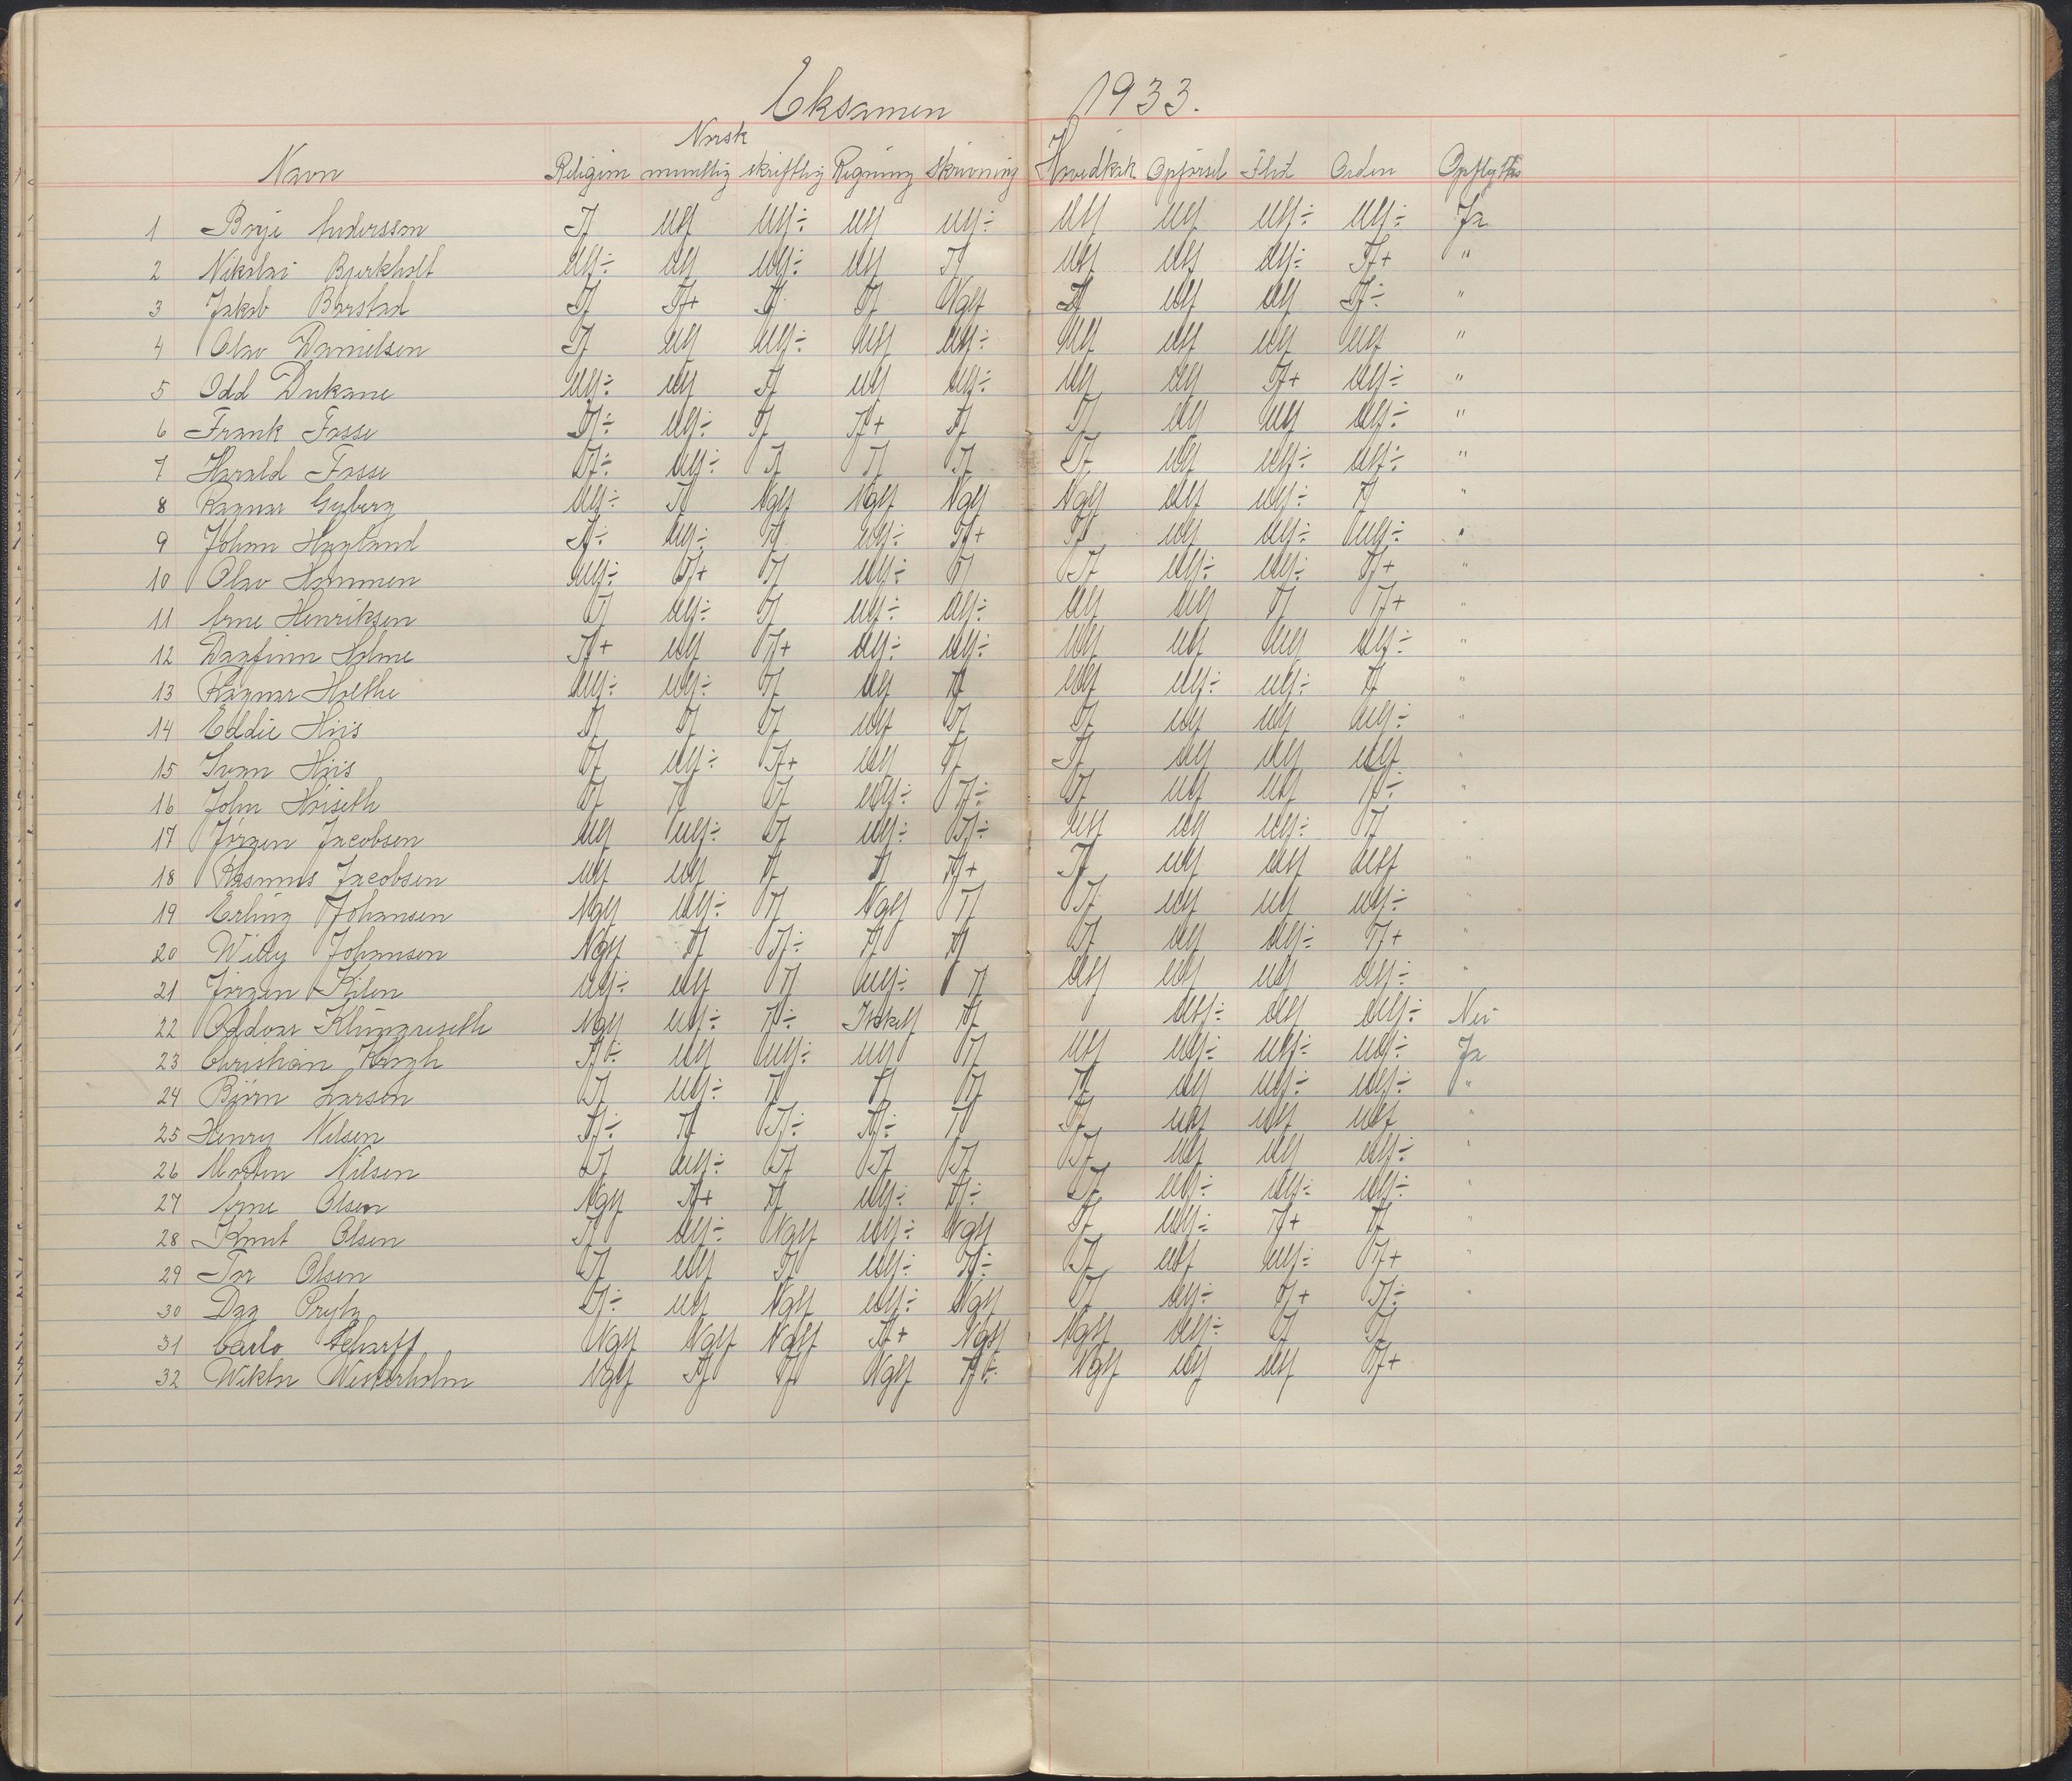 Eksamen 1933.
Norsk
Navn Religion muntlig skriftlig Regning Skrivning Hovedkar. Opførsel Flid Orden Opflyttes
1 Børje Anderssen Tf Mgf Mgf÷ Mgf Mgf÷ Mgf Mgf Mgf÷ Mgf÷ Ja
2 Nikolai Bjerkholt Mgf÷ Mgf Mgf÷ Mgf Tf Mgf Mgf Mgf÷ Tf+ "
3 Jakob Børstad Tf Tf+ Tf Tf Ngf Tf Mgf Mgf Tf÷ "
4 Olav Danielsen Tf Mgf Mgf÷ Mgf Mgf÷ Mgf Mgf Mgf Mgf "
5 Odd Mgf÷ Mgf Tf Mgf Mgf÷ Mgf Mgf Tf+ Mgf÷ "
6 Frank Fosse Tf÷ Mgf÷ Tf Tf+ Tf Tf Mgf Mgf Mgf÷ "
7 Harald Fosse Tf÷ Mgf÷ Tf Tf Tf Tf Mgf Mgf÷ Mgf÷ "
8 Ragnar Gyberg Mgf÷ Tf Ngf Ngf Ngf Ngf Mgf Mgf÷ Tf "
9 Johan Haagland Tf÷ Mgf÷ Tf Mgf÷ Tf+ Tf Mgf Mgf÷ Mgf÷ "
10 Olav Hammen Mgf÷ Tf+ Tf Mgf÷ Tf Tf Mgf÷ Mgf÷ Tf+ "
11 Arne Henriksen Tf Mgf÷ Tf Mgf÷ Mgf÷ Mgf Mgf Tf Tf+ "
12 Dagfinn Holme Tf+ Mgf Tf+ Mgf÷ Mgf÷ Mgf Mgf Mgf Mgf÷ "
13 Ragnar Holthe Mgf÷ Mgf÷ Tf Mgf Tf Mgf Mgf÷ Mgf÷ Tf "
14 Eddie Hiis Tf Tf Tf Mgf Tf Tf Mgf Mgf Mgf÷ "
15 Ivan Hiis Tf Mgf÷ Tf+ Mgf Tf Tf Mgf Mgf Mgf "
16 John Høiseth Tf Tf Tf Mgf÷ Tf÷ Tf Mgf Mgf Tf÷ "
17 Jørgen Jacobsen Mgf Mgf÷ Tf Mgf÷ Tf÷ Mgf Mgf Mgf÷ Tf "
18 Rasmus Jacobsen Mgf Mgf Tf Tf Tf+ Tf Mgf Mgf Mgf "
19 Erling Johansen Ngf Mgf÷ Tf Ngf Tf Tf Mgf Mgf Mgf÷ "
20 Willy Johansen Ngf Tf Tf÷ Tf Tf Tf Mgf Mgf÷ Tf+ "
21 Jørgen Kilen Mgf÷ Mgf Tf Mgf÷ Tf Mgf Mgf Mgf Mgf÷ "
22 Oddvar Klungreseth Ngf Mgf÷ Tf÷ Ikkef Tf Mgf÷ Mgf Mgf÷ Nei
23 Christian Krogh Tf÷ Mgf Mgf÷ Mgf Tf Mgf Mgf÷ Mgf÷ Mgf÷ Ja
24 Bjørn Larsen Tf Mgf÷ Tf Tf Tf Tf Mgf Mgf÷ Mgf÷ "
25 Henry Nilsen Tf÷ Tf Tf÷ Tf÷ Tf Tf Mgf Mgf Mgf "
26 Morten Nilsen Tf Mgf÷ Tf Tf Tf Tf Mgf Mgf Mgf÷ "
27 Arne Olsen Ngf Tf+ Tf Mgf÷ Tf÷ Tf Mgf÷ Mgf÷ Mgf÷ "
28 Knut Olsen Tf Mgf÷ Ngf Mgf÷ Ngf Tf Mgf÷ Tf+ Tf "
29 Tor Olsen Tf Mgf Tf Mgf÷ Tf÷ Tf Mgf Mgf÷ Tf+ "
30 Dag Prytz Tf÷ Mgf Ngf Mgf÷ Ngf Tf Mgf÷ Tf+ Tf÷ "
31 Carlo Scharff Ngf Ngf Ngf Tf+ Ngf Ngf Mgf÷ Tf Tf
32 Viktor Westerholm Ngf Tf Tf Ngf Tf÷ Ngf Mgf Mgf Tf+